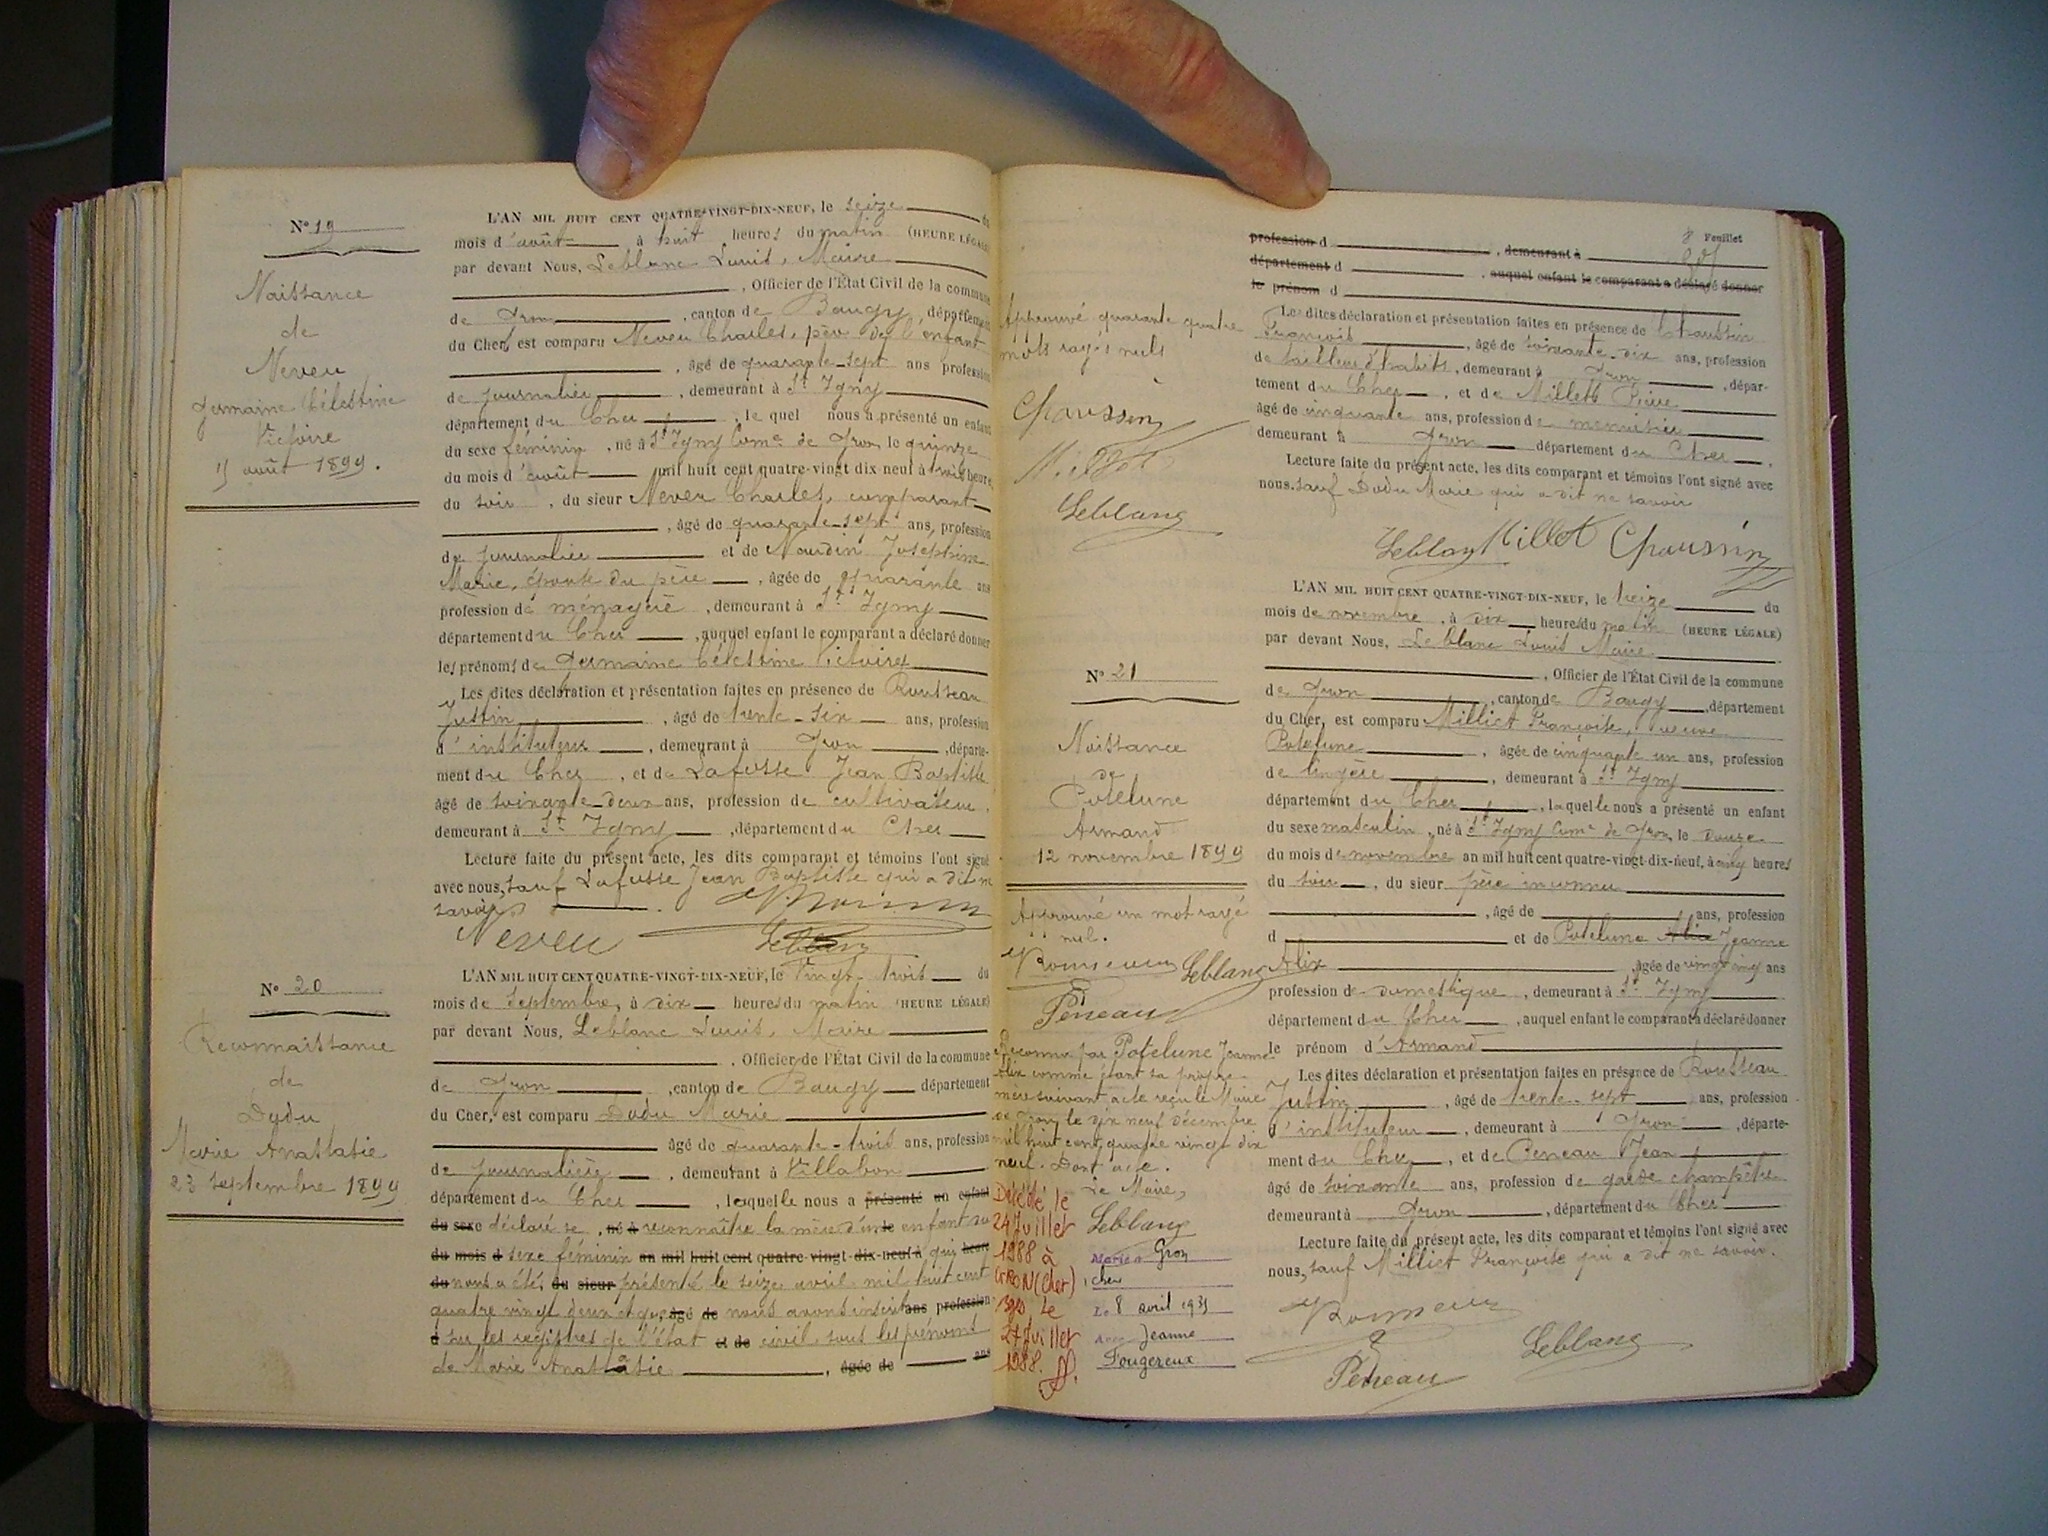 N° 19
Naissance
de
Neveu
Germaine Célestine
Victoire
15 août 1899.
L'AN MIL HUIT CENT QUATRE-VINGT-DIX-NEUF, le seize du
mois d'août à huit heures du matin (HEURE LÉGALE)
par devant Nous, Leblanc Louis, Maire
, Officier de l'État Civil de la commune
de Gron , canton de Baugy, département
du Cher, est comparu Neveu Charles, père de l'enfant
, âgé de quarante-sept ans profession
de journalier , demeurant à St Igny
département du Cher , le quel nous a présenté un enfant
du sexe féminin , né à St Igny Come de Gron, le quinze
du mois d'août mil huit cent quatre-vingt dix-neuf à heure
du soir , du sieur Neveu Charles, comparant
, âgé de quarante-sept ans, profession
de journalier et de Nourdin Joséphine
Marie, épouse du père , âgée de quarante ans
profession de ménagère , demeurant à St Igny
département du Cher , auquel enfant le comparant a déclaré donner
les prénoms de Germaine Célestine Victoire
Les dites déclaration et présentation faites en présence de Rousseau
Justin , âgé de trente-six ans, profession
d'instituteur , demeurant à Gron , départe-
ment du Cher , et de Lafosse Jean Baptiste
âgé de soixante-deux ans, profession de cultivateur,
demeurant à St Igny , département du Cher
Lecture faite du présent acte, les dits comparant et témoins l'ont signé
avec nous, sauf Lafosse Jean Baptiste qui a dit ne
savoir
Neveu Leblanc
N° 20
Reconnaissance
de
Dodu
Marie Anastasie
23 septembre 1899
L'AN MIL HUIT CENT QUATRE-VINGT-DIX-NEUF, le vingt-trois du
mois de septembre, à dix heures du matin (HEURE LÉGALE)
par devant Nous, Leblanc Louis, Maire
, Officier de l'État Civil de la commune
de Gron , canton de Baugy département
du Cher, est comparu Dodu Marie
âgé de quarante-trois ans, profession
de journalière , demeurant à Villabon
département du Cher , lequelle nous a présenté un enfant
du sexe déclaré se , né à reconnaître la mère d'un enfant du
du mois d sexe féminin an mil huit cent quatre-vingt-dix-neuf à qui heure
du nous a été, du sieur présenté le seize avril mil huit cent
quatre vingt deux et que âgé de nous avons inscrit ans profession
d sur les registres de l'état et de civil sous les prénoms
de Marie Anastasie , âgée de ans
8 Feuillet
profession d , demeurant à
département d , auquel enfant le comparant a déclaré donner
le prénom d
Approuvé quarante quatre
mots rayés nuls
Chaussin
Millet
Leblanc
Les dites déclaration et présentation faites en présence de Chaussin
François , âgé de soixante-dix ans, profession
de tailleur d'habits, demeurant à Gron , dépar-
tement du Cher , et de Millet Pierre
âgé de cinquante ans, profession de menuisier
demeurant à Gron département du Cher .
Lecture faite du présent acte, les dits comparant et témoins l'ont signé avec
nous. sauf Dodu Marie qui a dit ne savoir
Leblanc Millet Chaussin
N° 21
Naissance
de
Potelune
Armand
12 novembre 1899
L'AN MIL HUIT CENT QUATRE-VINGT-DIX-NEUF, le treize du
mois de novembre , à dix heures du matin (HEURE LÉGALE)
par devant Nous, Leblanc Louis Maire
, Officier de l'État Civil de la commune
de Gron , canton de Baugy , département
du Cher, est comparu Milliet Françoise, veuve
Potelune , âgée de cinquante un ans, profession
de lingère , demeurant à St Igny
département du Cher , laquelle nous a présenté un enfant
du sexe masculin , né à St Igny Come de Gron, le douze
du mois de novembre an mil huit cent quatre-vingt-dix-neuf, à cinq heures
du soir , du sieur père inconnu
, âgé de ans, profession
d et de Potelune Alice Jeanne
Alix , âgée de vingt cinq ans
profession de domestique , demeurant à St Igny
département du Cher , auquel enfant le comparant a déclaré donner
le prénom d'Armand
Les dites déclaration et présentation faites en présence de Rousseau
Justin , âgé de trente-sept ans, profession
d'instituteur , demeurant à Gron , départe-
ment du Cher , et de Peneau Jean
âgé de soixante ans, profession de garde champêtre
demeurant à Gron , département du Cher
Lecture faite du présent acte, les dits comparant et témoins l'ont signé avec
nous, sauf Milliet Françoise qui a dit ne savoir.
Rousseau
Péneau Leblanc
Approuvé un mot rayé
nul.
Rousseau Leblanc
Péneau
Reconnu par Potelune Jeanne
Alix comme étant sa propre
mère suivant acte reçu le Maire
de Gron, le dix neuf décembre
mil huit cent quatre vingt dix
neuf. Dont acte.
Le Maire,
Leblanc
Décédé le
24 Juillet
1988 à
GRON (Cher)
le
27 Juillet
1988.
Marié à Gron
Cher
Le 8 avril
avec Jeanne
Fougereux